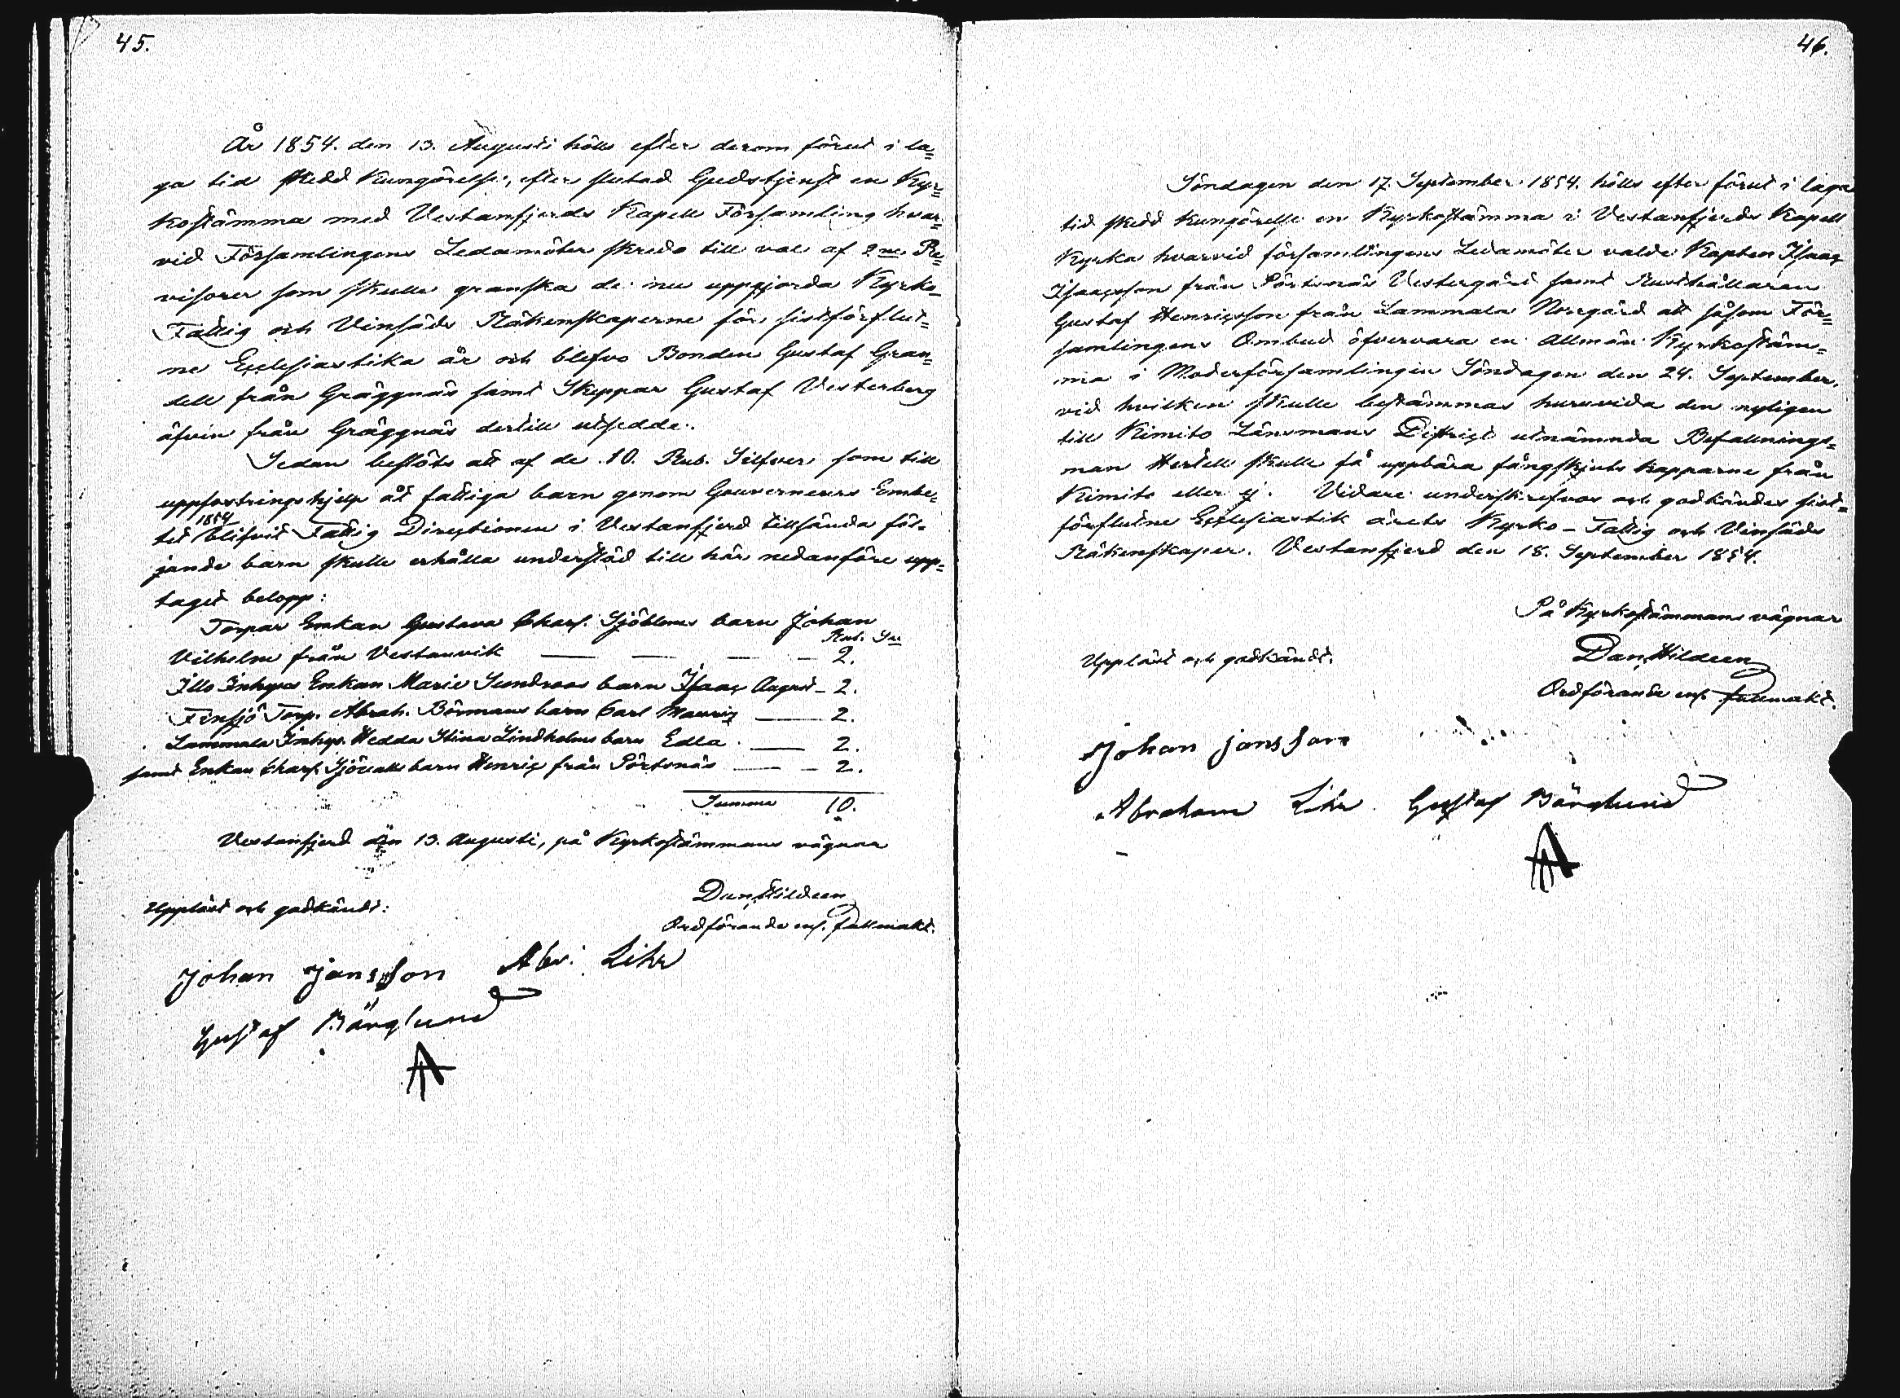 45.
År 1854. den 13. Augusti hölls efter derom förut i la=
ga tid skedd Kungörelse, efter slutad Gudstjenst en Kyr=
kostämma med Vestanfjerds Kapell Församling hvar=
vid Församlingens Ledamöter skredo till val af 2ne Re=
visorer som skulle granska de nu uppgjorda Kyrko=
Fattig och Vinsäds Räkenskaperne för sistförflut=
ne Ecclesiastika år och blefvo Bonden Gustaf Gran=
dell från Gräggnäs samt Skeppar Gustaf Vesterberg
äfven från Gräggnäs dertill utsedde.
Sedan beslöts att af de 10. Rub. Silfver som till
uppfostringshjelp åt fattiga barn genom Gouverneurs Embe=
1854
tet blifvit Fattig Directionen i Vestanfjerd tillsända föl=
jande barn skulle erhålla understöd till här nedanföre upp=
taget belopp:
Torpar Enkan Gustava Charl. Sjöbloms barn Johan
Rub. Sr
Vilhelm från Vestanvik — — — — 2.
Illo Inhyses Enkan Maria Sundroos barn Isaac August — 2.
Finsjö Torp. Abrah. Börmans barn Carl Mauritz — 2.
Lammala Inhys. Hedda Stina Lindholms barn Edla — 2.
samt Enkan Charl. Sjövalls barn Henric från Pörtsnäs — — 2.
Summa 10.
Vestanfjerd den 13. Augusti, på Kyrkostämmans vägnar
Dan. Hildeen
Uppläst och godkändt:
Ordförande enl. fullmakt.
Johan Jansson Abr. Lihr
Gustaf Bärglund
46.
Söndagen den 17. September 1854. hölls efter förut i laga
tid skedd Kungörelse en Kyrkostämma i Vestanfjerds Kapell
Kyrka hvarvid församlingens Ledamöter valde Kapten Isaac
Isaacsson från Pörtsnäs Vestergård samt Rusthållaren
Gustaf Henricsson från Lammala Norrgård att såsom För=
samlingens Ombud öfvervara en Allmän Kyrkostäm=
ma i Moderförsamlingen Söndagen den 24. September,
vid hvilken skulle bestämmas huruvida den nyligen
till Kimito Länsmans District utnämnda Befallnings=
man Hertell skulle få uppbära fångskjuts kapparne från
Kimito eller ej. Vidare underskrefvos och godkändes sist=
förflutne Ecclesiastik årets Kyrko - Fattig och Vinsäds
Räkenskaper. Vestanfjerd den 18. September 1854.
På Kyrkostämmans vägnar
Dan. Hildeen
Uppläst och godkändt.
Ordförande enl. fullmakt.
Johan Jansson
Abraham Lihr. Gustaf Bärglund